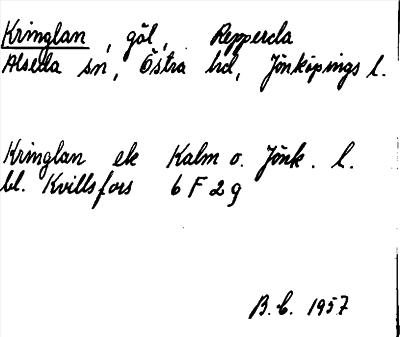 Kringlan, göl, Repperda
Alseda sn, Östra hd, Jönköpings l.
Kringlan ek Kalm o. Jönk. l.
bl. Kvillsfors 6 F 2 g
B. C. 1957